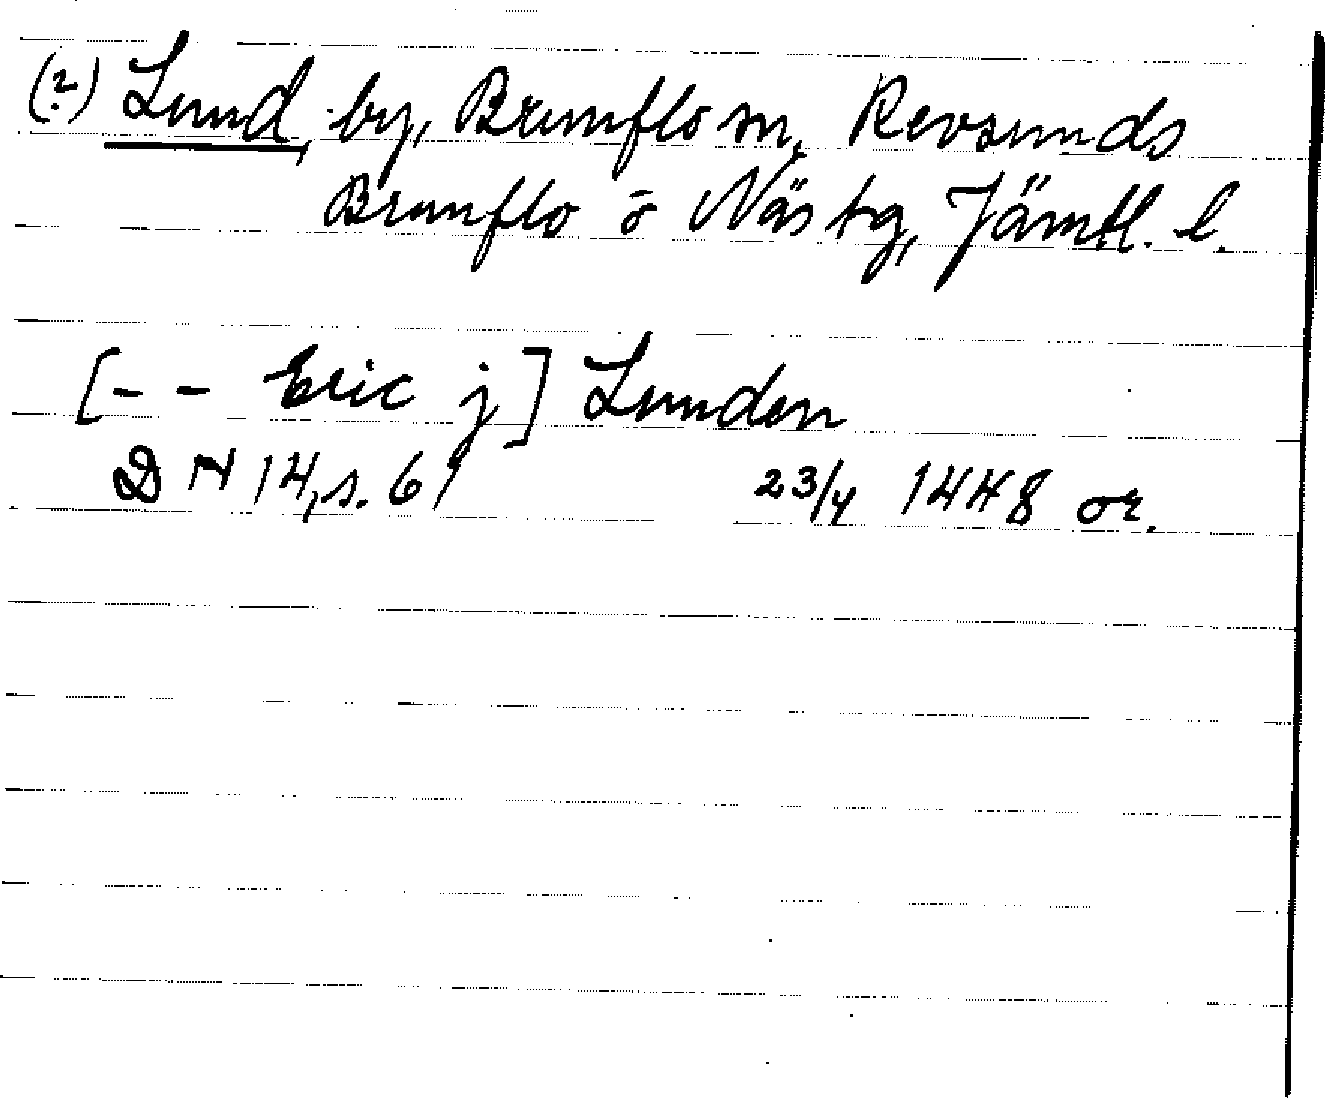 (?) Lund, by, Brunflo sn, Revsunds
Brunflo o Näs tg, Jämtl. l.
[- - Eric j] Lunden
DN 14, s. 61 23/4 1448 or.